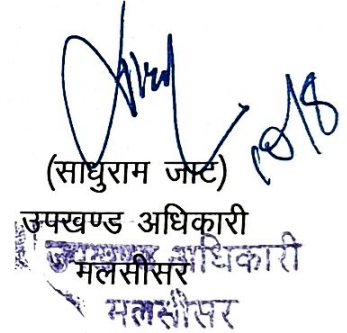 (साधुराम जाट)
उपखण्ड अधिकारी
मलसीसर
उपखण्ड अधिकारी
मलसीसर